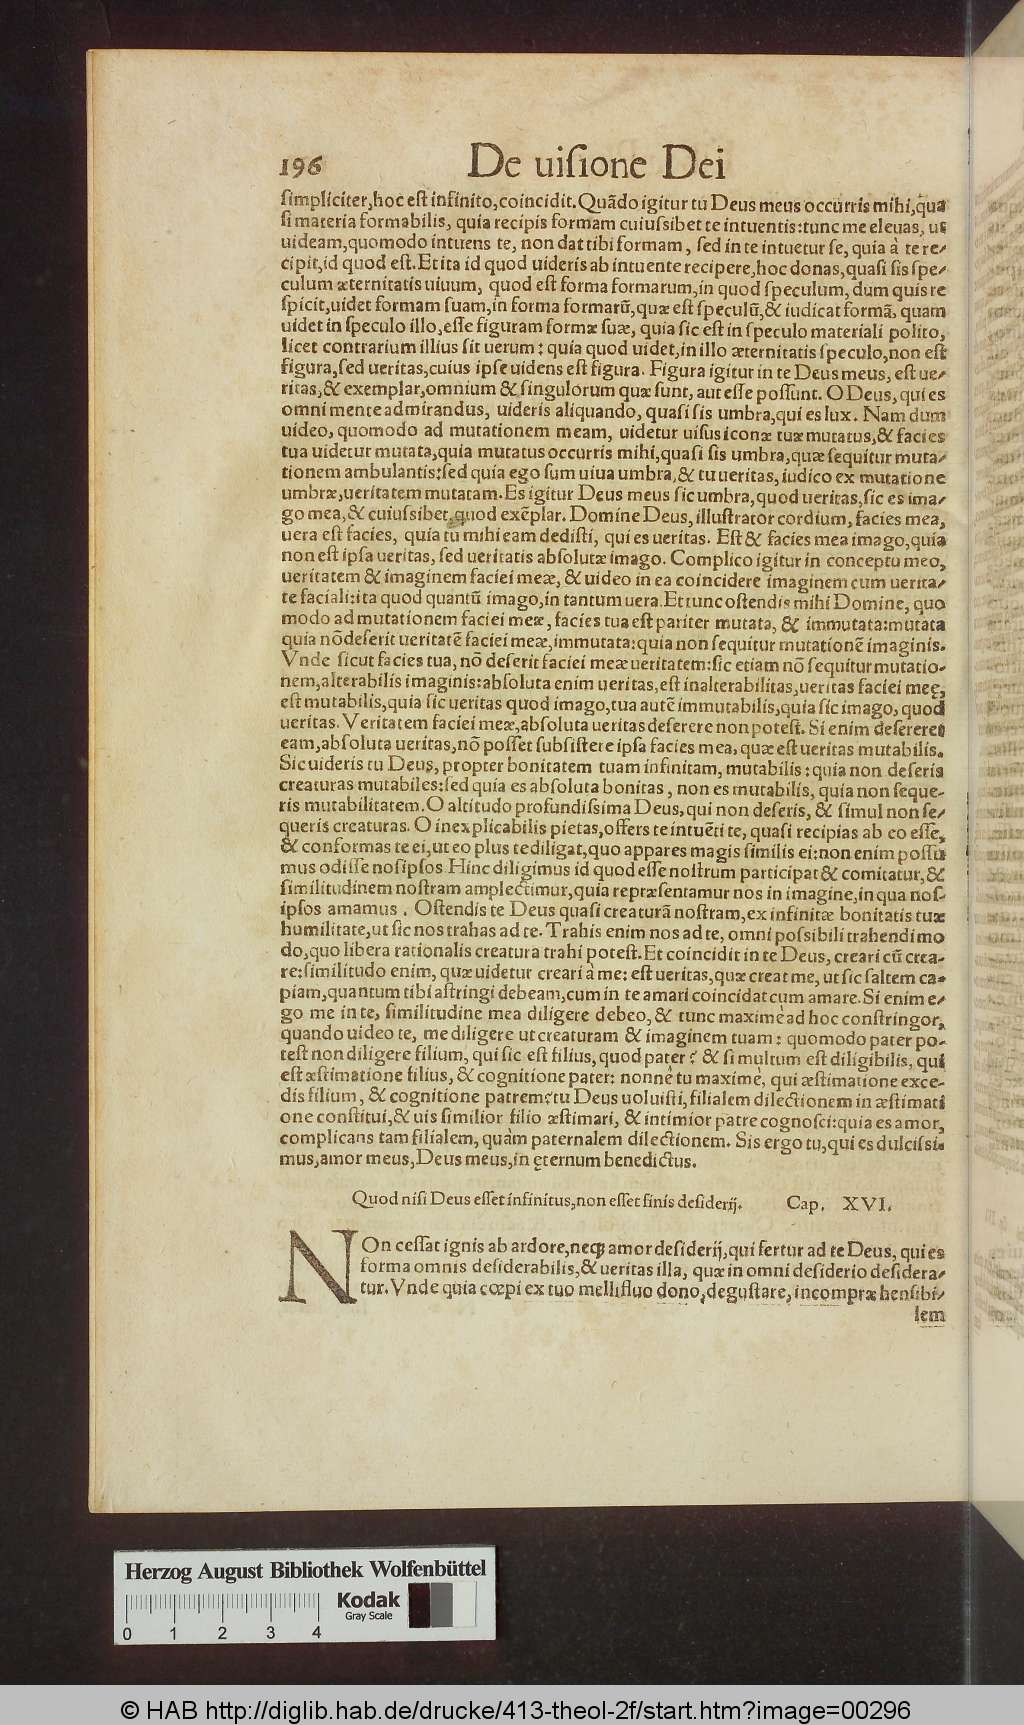 196 De uiſione Dei
ſimpliciter, hoc eſt infinito, coincidit. Quãdo igitur tu Deus meus occurris mihi, qua
ſi materia formabilis, quia recipis formam cuiuſlibet te intuentis: tunc me eleuas, ut
uideam, quomodo intuens te, non dat tibi formam, ſed in te intuetur ſe, quia à te re-
cipit, id quod eſt. Et ita id quod uideris ab intuente recipere, hoc donas, quaſi ſis ſpe-
culum æternitatis uiuum, quod eſt forma formarum, in quod ſpeculum, dum quis re
ſpicit, uidet formam ſuam, in forma formarũ, quæ eſt ſpeculũ, & iudicat formã, quam
uidet in ſpeculo illo, eſſe figuram formæ ſuæ, quia ſic eſt in ſpeculo materiali polito,
licet contrarium illius ſit uerum: quia quod uidet, in illo æternitatis ſpeculo, non eſt
figura, ſed ueritas, cuius ipſe uidens eſt figura. Figura igitur in te Deus meus, eſt ue-
ritas, & exemplar, omnium & ſingulorum quæ ſunt, aut eſſe poſſunt. O Deus, qui es
omni mente admirandus, uideris aliquando, quaſi ſis umbra, qui es lux. Nam dum
uideo, quomodo ad mutationem meam, uidetur uiſus iconæ tuæ mutatus, & facies
tua uidetur mutata, quia mutatus occurris mihi, quaſi ſis umbra, quæ ſequitur muta-
tionem ambulantis: ſed quia ego ſum uiua umbra, & tu ueritas, iudico ex mutatione
umbræ, ueritatem mutatam. Es igitur Deus meus ſic umbra, quod ueritas, ſic es ima-
go mea, & cuiuſlibet, quod exẽplar. Domine Deus, illuſtrator cordium, facies mea,
uera eſt facies, quia tu mihi eam dediſti, qui es ueritas. Eſt & facies mea imago, quia
non eſt ipſa ueritas, ſed ueritatis abſolutæ imago. Complico igitur in conceptu meo,
ueritatem & imaginem faciei meæ, & uideo in ea coincidere imaginem cum uerita-
te faciali: ita quod quantũ imago, in tantum uera. Et tunc oſtendis mihi Domine, quo
modo ad mutationem faciei meæ, facies tua eſt pariter mutata, & immutata: mutata
quia nõ deſerit ueritatẽ faciei meæ, immutata: quia non ſequitur mutationẽ imaginis.
Vnde ſicut facies tua, nõ deſerit faciei meæ ueritatem: ſic etiam nõ ſequitur mutatio-
nem, alterabilis imaginis: abſoluta enim ueritas, eſt inalterabilitas, ueritas faciei meę,
eſt mutabilis, quia ſic ueritas quod imago, tua autẽ immutabilis, quia ſic imago, quod
ueritas. Veritatem faciei meæ, abſoluta ueritas deſerere non poteſt. Si enim deſereret
eam, abſoluta ueritas, nõ poſſet ſubſiſtere ipſa facies mea, quæ eſt ueritas mutabilis.
Sic uideris tu Deus, propter bonitatem tuam infinitam, mutabilis: quia non deſeris
creaturas mutabiles: ſed quia es abſoluta bonitas, non es mutabilis, quia non ſeque-
ris mutabilitatem. O altitudo profundiſsima Deus, qui non deſeris, & ſimul non ſe-
queris creaturas. O inexplicabilis pietas, offers te intuẽti te, quaſi recipias ab eo eſſe,
& conformas te ei, ut eo plus te diligat, quo appares magis ſimilis ei: non enim poſſu
mus odiſſe noſipſos Hinc diligimus id quod eſſe noſtrum participat & comitatur, &
ſimilitudinem noſtram amplectimur, quia repræſentamur nos in imagine, in qua noſ-
ipſos amamus. Oſtendis te Deus quaſi creaturã noſtram, ex infinitæ bonitatis tuæ
humilitate, ut ſic nos trahas ad te. Trahis enim nos ad te, omni poſsibili trahendi mo
do, quo libera rationalis creatura trahi poteſt. Et coincidit in te Deus, creari cũ crea-
re: ſimilitudo enim, quæ uidetur creari à me: eſt ueritas, quæ creat me, ut ſic ſaltem ca-
piam, quantum tibi aſtringi debeam, cum in te amari coincidat cum amare. Si enim e-
go me in te, ſimilitudine mea diligere debeo, & tunc maximè ad hoc conſtringor,
quando uideo te, me diligere ut creaturam & imaginem tuam: quomodo pater po-
teſt non diligere filium, qui ſic eſt filius, quod pater? & ſi multum eſt diligibilis, qui
eſt æſtimatione filius, & cognitione pater: nonnè tu maximè, qui æſtimatione exce-
dis filium, & cognitione patrem? tu Deus uoluiſti, filialem dilectionem in æſtimati
one conſtitui, & uis ſimilior filio æſtimari, & intimior patre cognoſci: quia es amor,
complicans tam filialem, quàm paternalem dilectionem. Sis ergo tu, qui es dulciſsi-
mus, amor meus, Deus meus, in ęternum benedictus.
Quod niſi Deus eſſet infinitus, non eſſet finis deſiderij. Cap. XVI.
NOn ceſſat ignis ab ardore, neqꝫ amor deſiderij, qui fertur ad te Deus, qui es
forma omnis deſiderabilis, & ueritas illa, quæ in omni deſiderio deſidera-
tur. Vnde quia cœpi ex tuo mellifluo dono, deguſtare, incompræhenſibi-
lem
Herzog August Bibliothek Wolfenbüttel
Kodak
Gray Scale
0 1 2 3 4
© HAB http://diglib.hab.de/drucke/413-theol-2f/start.htm?image=00296